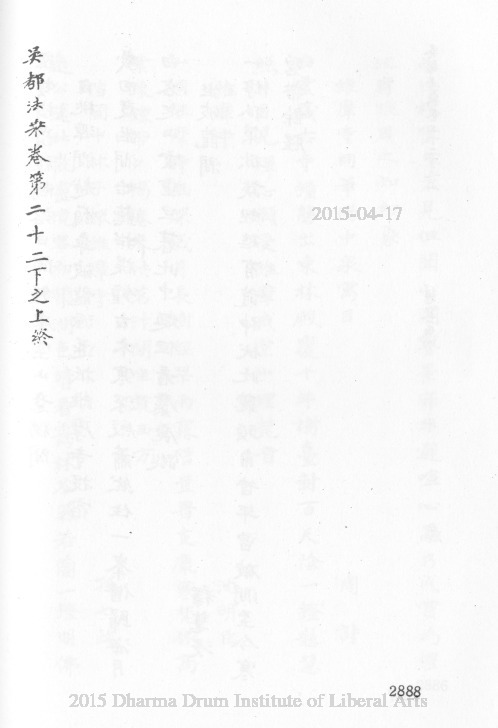 吴都法乘卷第二十二下之上終
2015-04-17
2888
2015 Dharma Drum Institute of Liberal Arts